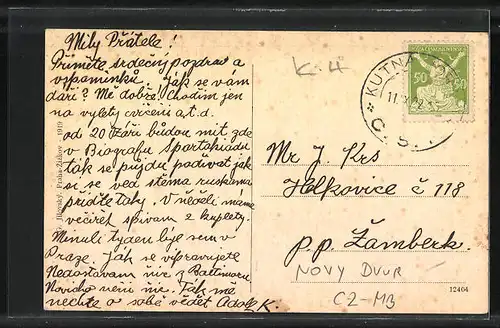 Milý Přátele!
Přiměte srdečný pozdrav a
vzpomínku. Jak se vám
daří? Mě dobře. Chodím jen
na vylety cvičení a.t.d.
od 20 Září budou mít zde
v Biografu Spartakiadu
tak se půjdu podívat jak
si se ved stema ruskama
přiďte taky. V neděli mame
večírek spívam z kuplety.
Minulí tyden byl sem v
Praze. Jak se vypravujete
Nedostavam nic z Baltimoru
Noviho neni nic. Tak mě
nechte o sobě vědět Adolf K.
Praha-Žižkov 1919
K-4
KUTNÁ
11.
Č. S.
ČESKOSLOVENSKÁ
50 50
Mr J. Krs
Helkovice č 118
p.p. Žamberk.
NOVY DVUR
C2-MB
12404